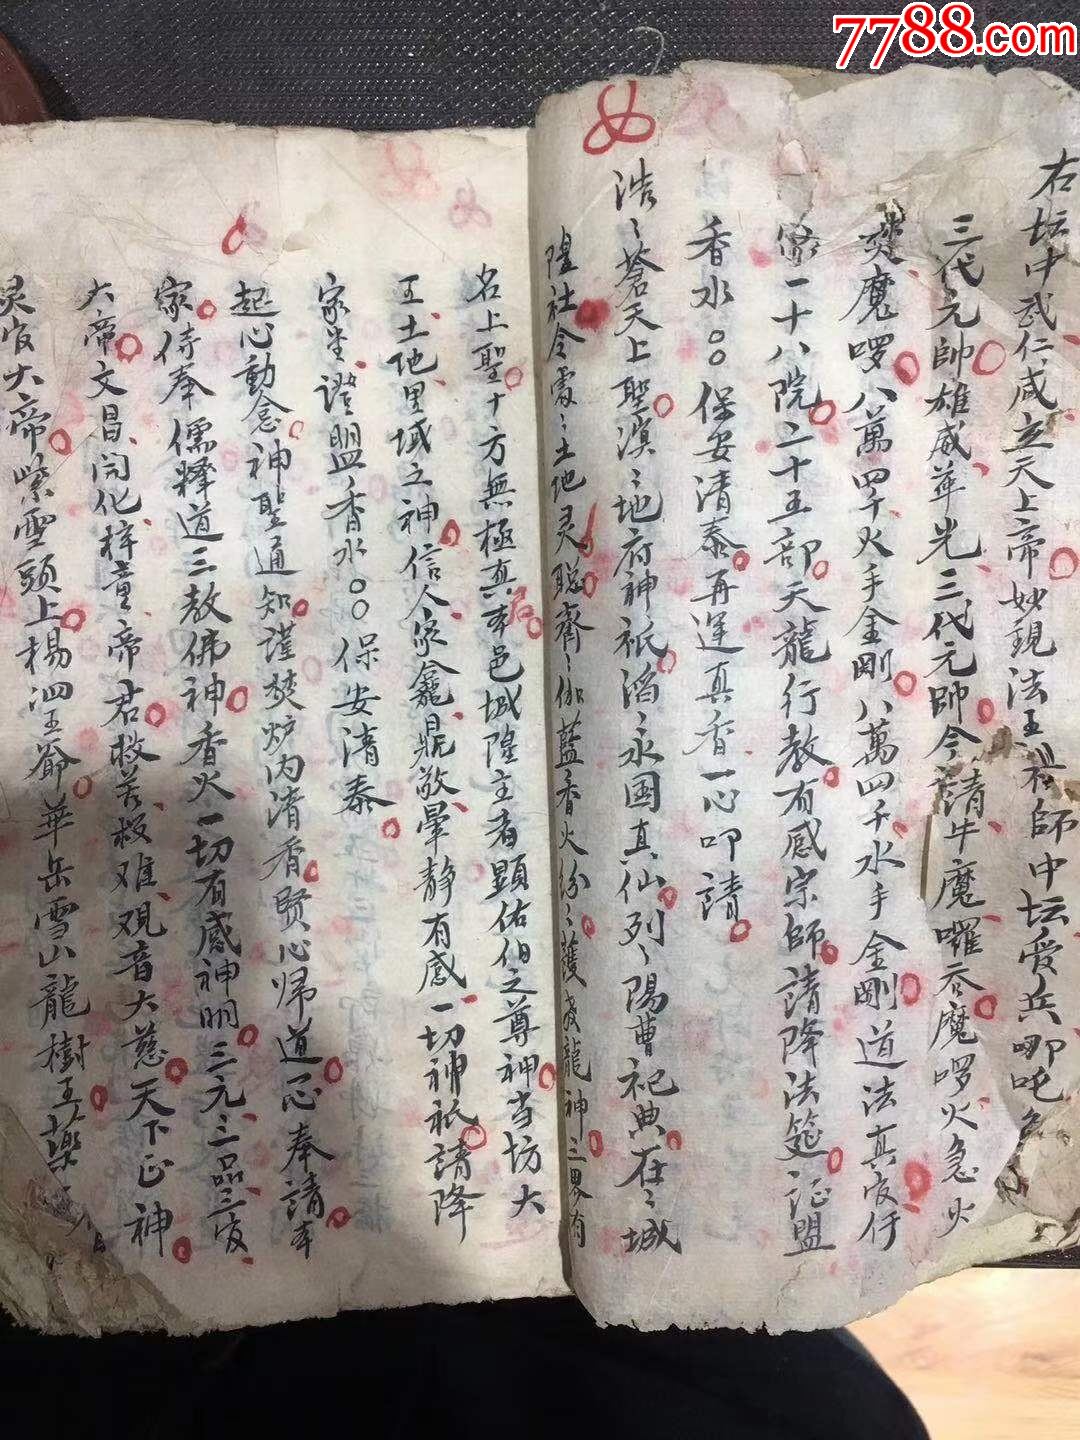 7788.com
右坛中武仁咸立天上帝妙現法王祖師中坛爱兵哪吒
三代元帥雄威華光三代元帥今請牛魔囉吞魔啰火急火
魔啰八萬四千火手金剛八萬四千水手金剛道法真官仔
一十八院二十五部天龍行教有感宗師請降法筵证盟
香水○○保安清泰再运真香一心叩請
浩〻蒼天上聖漠〻地府神祇滔〻水国真仙列〻陽曹祀典在〻城
隍社令處〻土地灵聪齋〻伽藍香火紛〻護教龍神三界有
名上聖十方無極真君本邑城隍主者顕佑伯之尊神当坊大
王土地里域之神信人家龕鼎敬暈静有感一切神祇請降
家坐證盟香水○○保安清泰
起心動念神聖通知谨焚炉内清香賢心帰道心奉請本
家侍奉儒释道三教佛神香火一切有感神明三元三品三官
大帝文昌開化梓童帝君救苦极难观音大慈天下正神
灵官大帝紫雲頭上楊泗王爺華岳雪山龍樹王藥